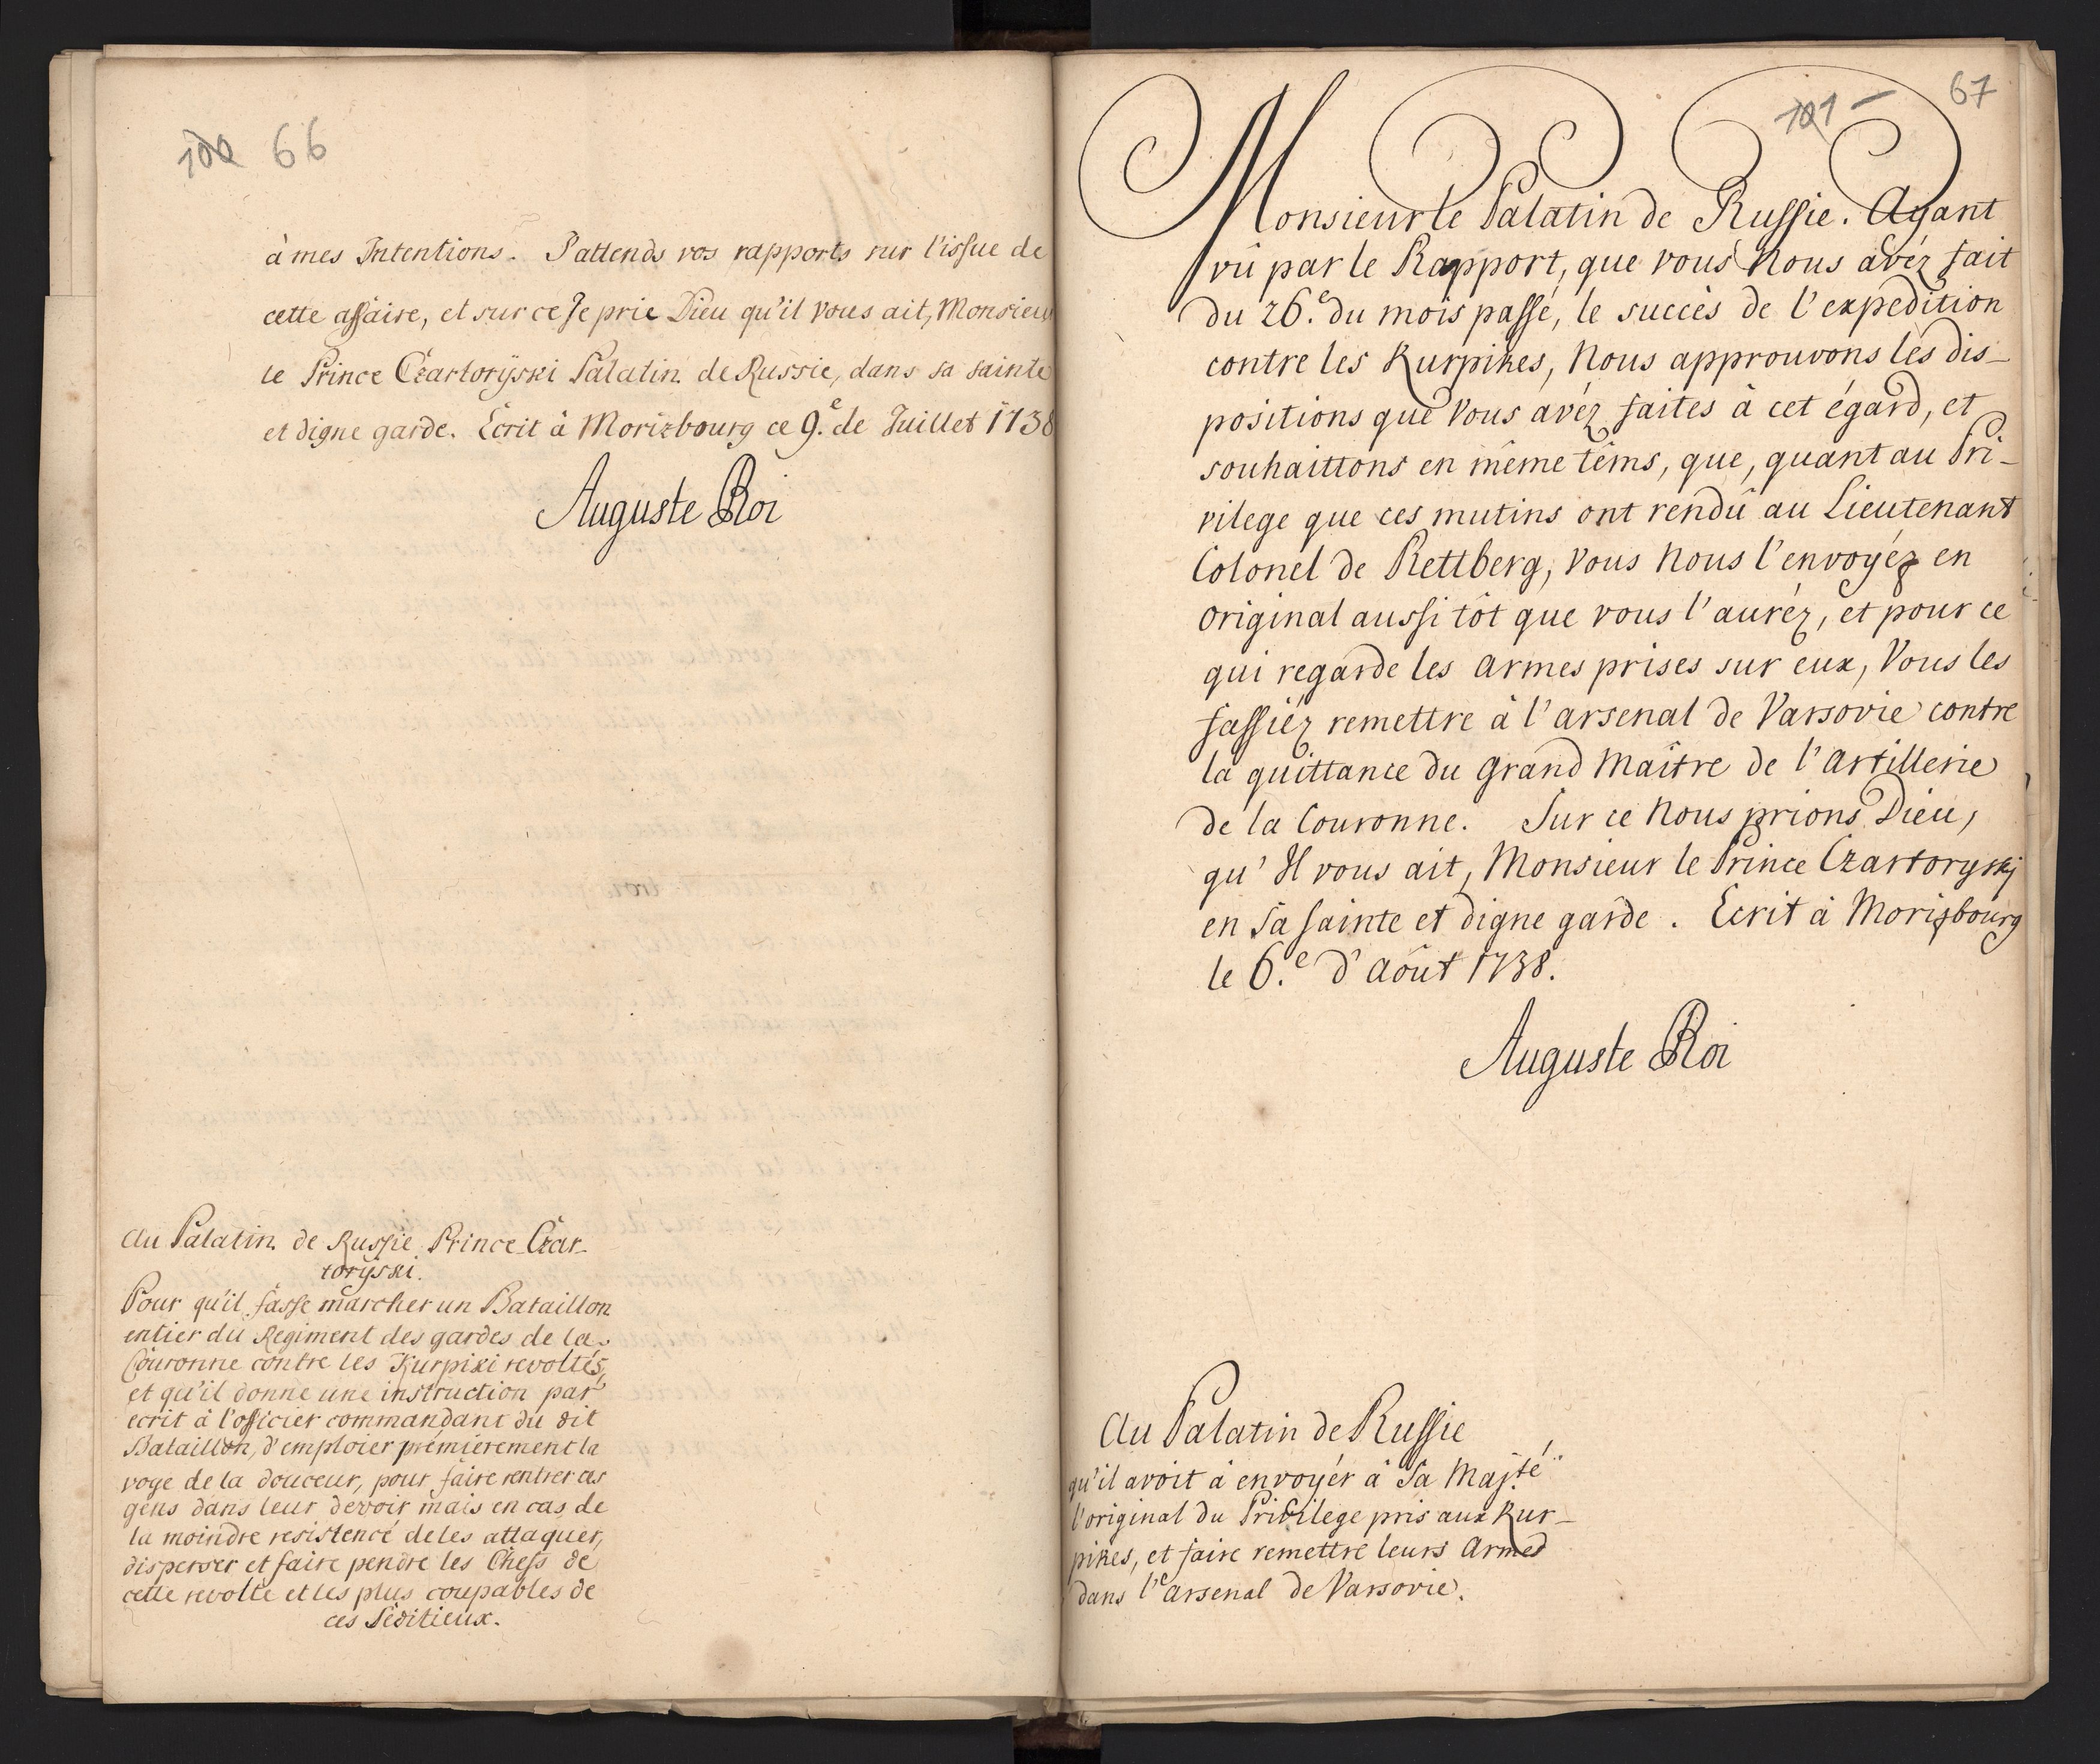 100 66
à mes Intentions. J'attends vos rapports sur l'issue de
cette affaire, et sur ce Je prie Dieu qu'il vous ait, Monsieur
le Prince Czartorÿski Palatin de Russie, dans sa sainte
et digne garde. Ecrit à Morizbourg ce 9.e de Juillet 1738
Auguste Roi
Au Palatin de Russie Prince Czar-
torÿski.
Pour qu'il fasse marcher un Bataillon
entier du Regiment des gardes de la
Couronne contre les Kurpiki revoltés,
et qu'il donne une instruction par
ecrit à l'officier commandant du dit
Bataillon, d'emploier premierement la
voye de la douceur, pour faire rentrer ces
gens dans leur devoir mais en cas de
la moindre resistence de les attaquer,
disperser et faire pendre les Chefs de
cette revolte et les plus coupables de
ces Séditieux.
101 67
Monsieur le Palatin de Russie. Ayant
vû par le Rapport, que vous Nous avéz fait
du 26.e du mois passé, le succès de l'expedition
contre les Kurpikes, Nous approuvons les dis-
positions que Vous avéz faites à cet égard, et
souhaittons en même têms, que, quant au Pri-
vilege que ces mutins ont rendû au Lieutenant
Colonel de Rettberg, Vous Nous l'envoyéz en
original aussi tôt que vous l'auréz, et pour ce
qui regarde les armes prises sur eux, Vous les
fassiéz remettre à l'arsenal de Varsovie contre
la quittance du Grand Maître de l'Artillerie
de la Couronne. Sur ce Nous prions Dieu,
qu'Il vous ait, Monsieur le Prince Czartoryskj
en Sa sainte et digne garde. Ecrit à Morizbourg
le 6.e d'Août 1738.
Auguste Roi
Au Palatin de Russie
qu'il avoit à envoyér à Sa Maj.té
l'original du Privilege pris aux Kur-
pikes, et faire remettre leurs Armes
dans l'arsenal de Varsovie.